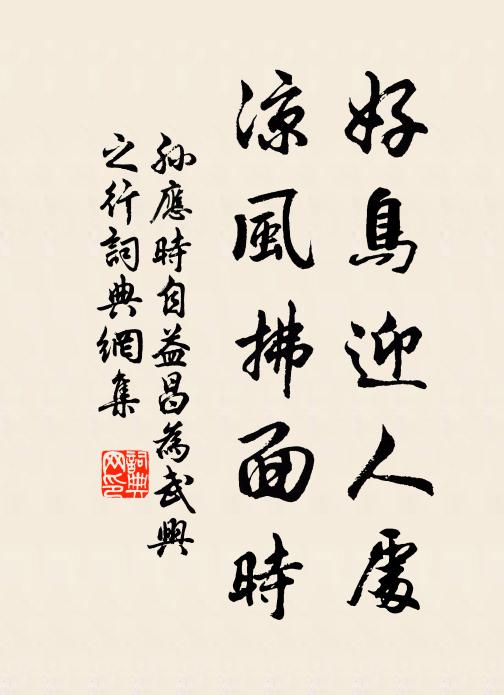 好鳥迎人處
涼風拂面時
孫應時自益昌為武興
之行詞典網集
詞典
网印